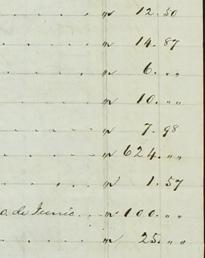 " 12.50
" 14.87
" 6. ""
" 10. ""
" 7.98
" 624. ""
" 1.57
" 100. ""
" 25. ""